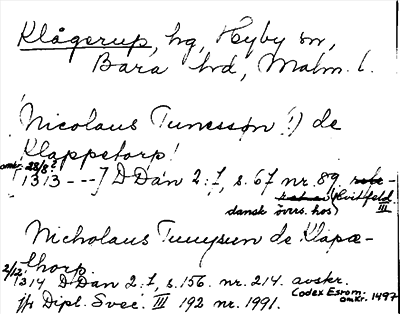 Klågerup, hg, Hyby sn,
Bara hd, Malm. l.
Nicolaus Tunessøn (!) de
Klappetorp!
omkr. 28/8?
[1313 - - -] DDan 2:7, s. 67 nr. 89
dansk övers. hos) Hvitfeld III
Nicholaus Tuuysun de Klapæ-
thorp.
2/12 1314 DDan 2:7, s. 156. nr. 214. avskr.
Codex Esrom. omkr. 1497
jfr Dipl. Svec. III 192 nr. 1991.